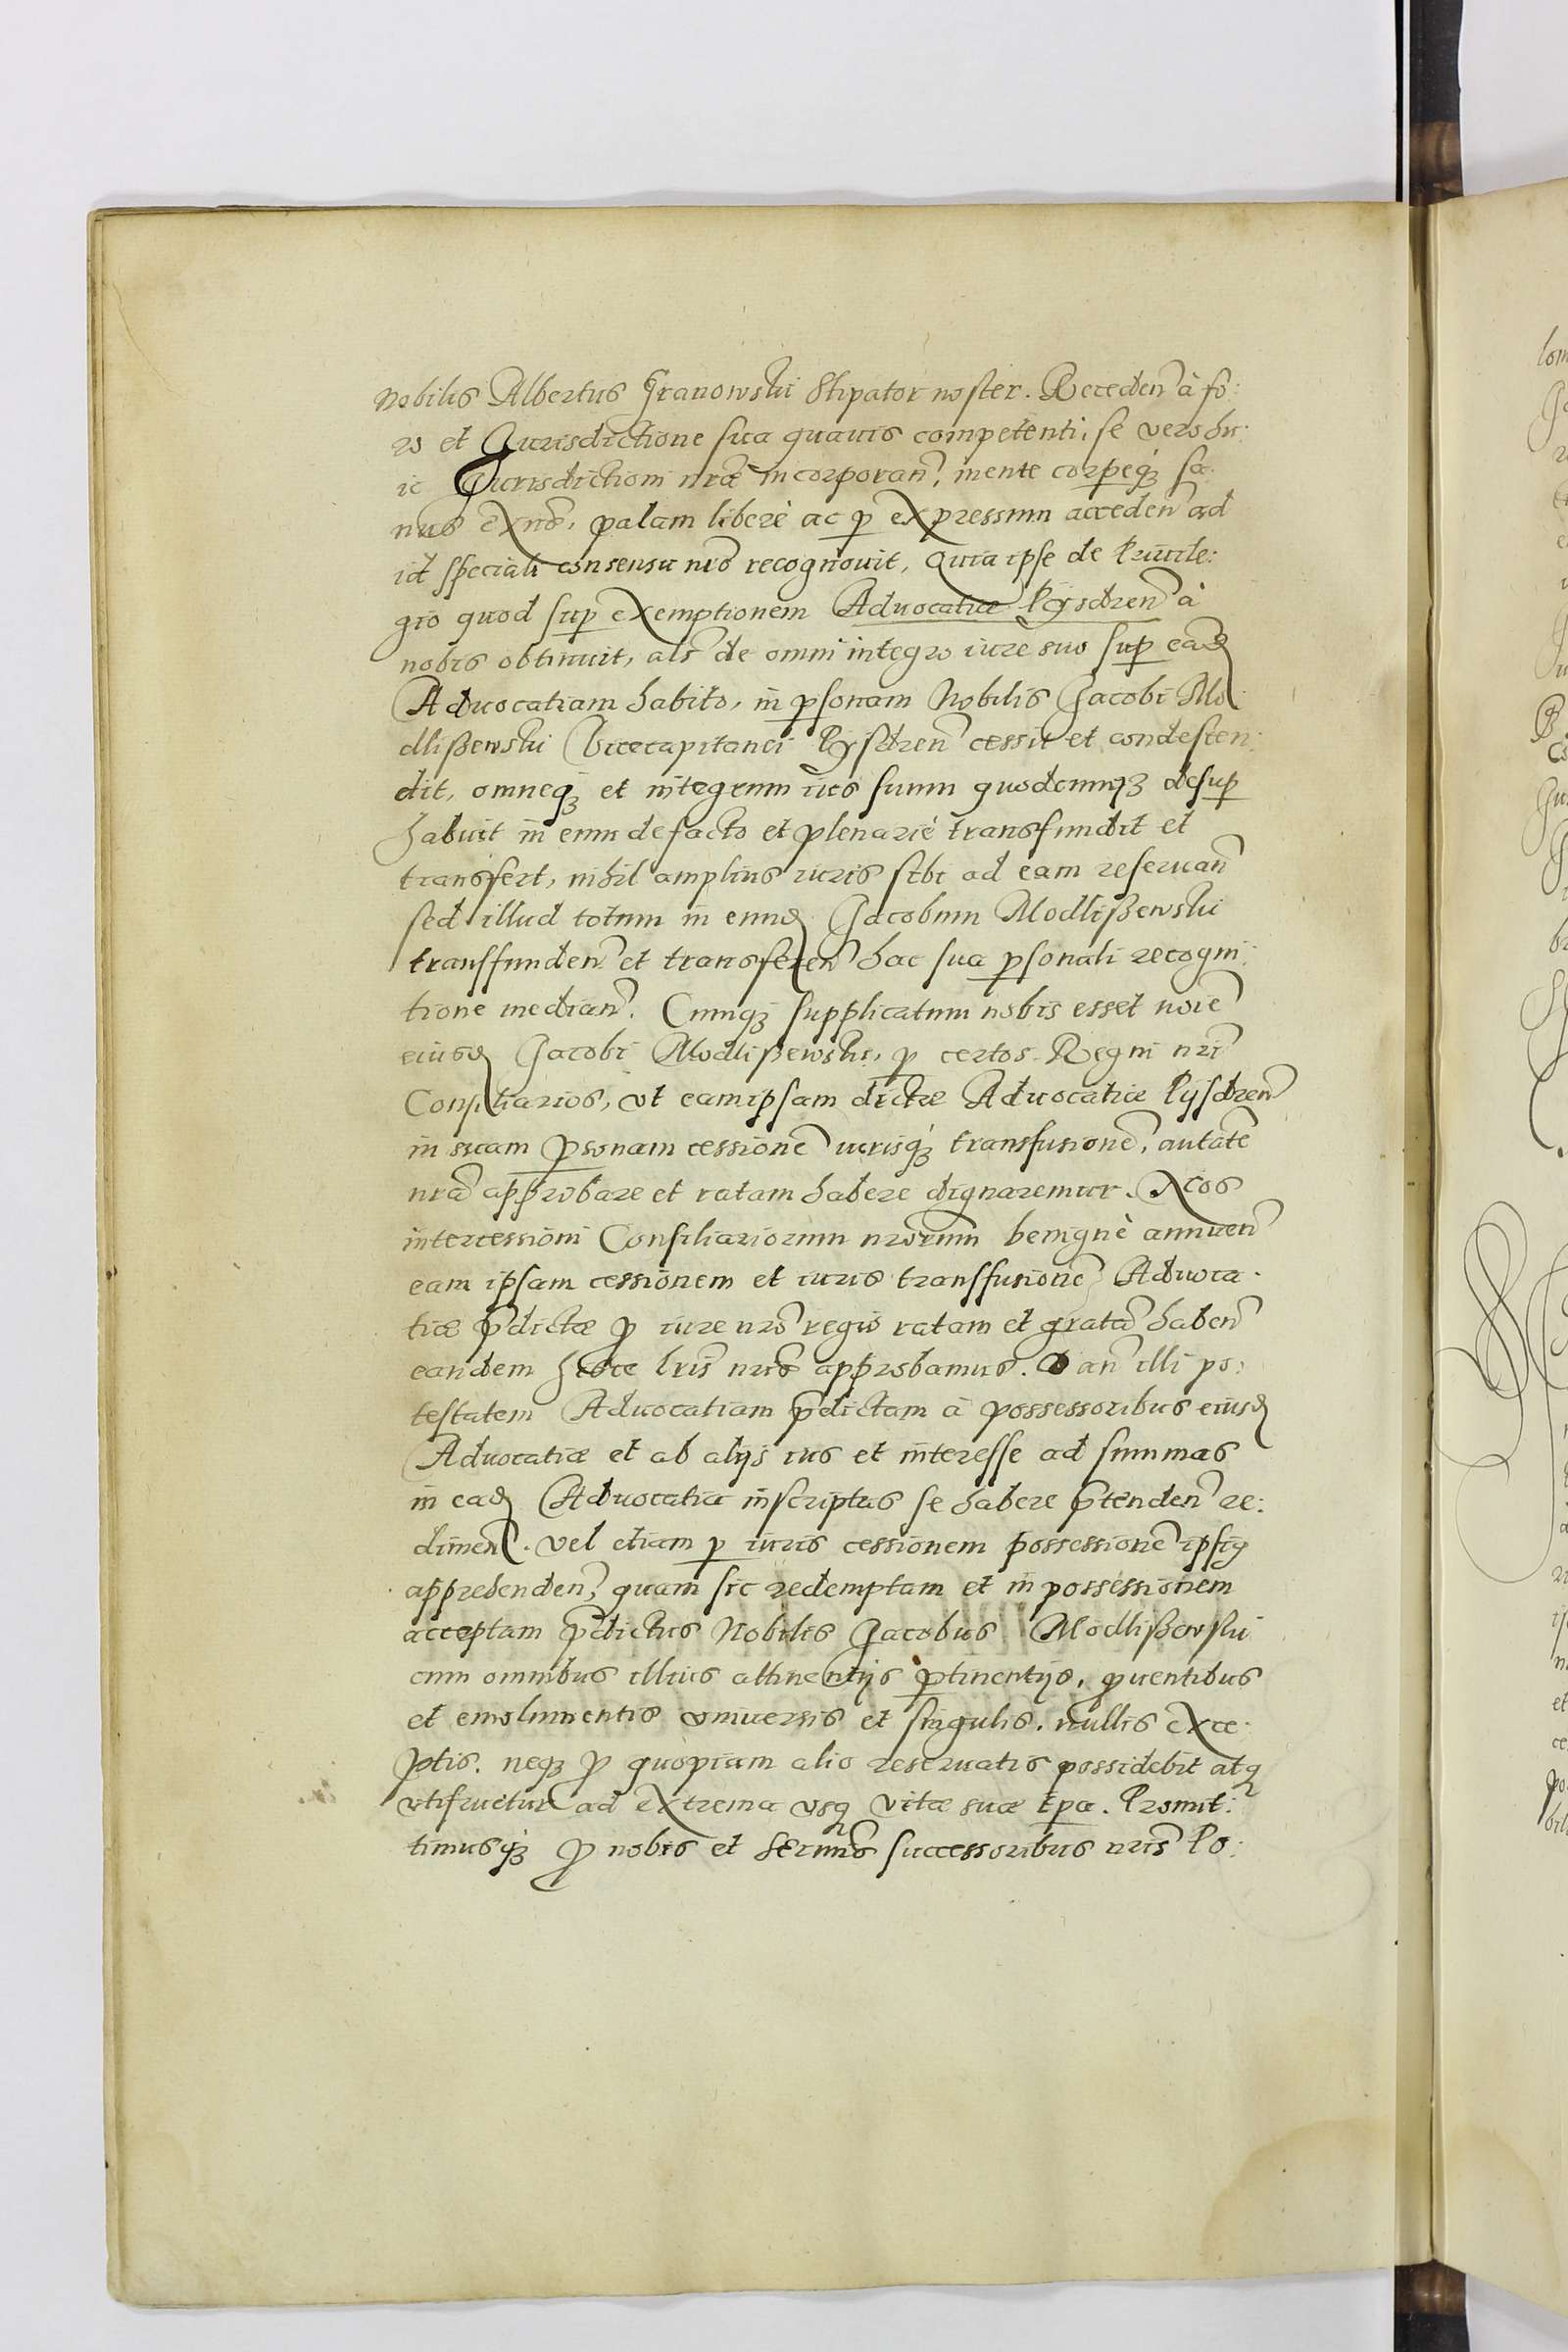 Nobilis Albertus Granowski Stipator noster. Receden̄ à fo:
ro et Jurisdictione sua quauis competenti, se vero hu:
ic Jurisdictioni nr̄æ incorporan̄, mente corpeq́ꝫ sa:
nus exn̄s, palam liberè ac ꝑ expressum acceden̄ ad
id speciali consensu nr̄o recognouit, Quia ipse de Priuile:
gio quod sup̱ exemptionem Aduocatiæ Pysdren̄ à
nobis obtinuit, als̄ de omni integro iure suo sup̱ ead̄
Aduocatiam habito, in ꝑsonam Nobilis Jacobi Mo
dlißewski Vicecapitanei Pysdren̄ cessit et condescen:
dit, omneqꝫ et integrum ius suum quodcumqꝫ desup̱
habuit in eum de facto et plenariè transfundit et
transfert, nihil amplius iuris sibi ad eam reseruan̄
sed illud totum in eund̄ Jacobum Modlißewski
transfunden̄ et transferen̄ hac sua ꝑsonali recogni:
tione median̄. Cumqꝫ supplicatum nobis esset noīe
eiusd̄ Jacobi Modlißewski, ꝑ certos Regni nr̄i
Consiliarios, vt eam ipsam dictæ Aduocatiæ Pysdren̄
in suam ꝑsonam cessionē iurisq́ꝫ transfusionē, autātē
nr̄ā approbare et ratam habere dignaremur. Nos
intercessioni Consiliariorum nr̄orum benignè annuen̄
eam ipsam cessionem et iuris transfusionē Aduoca:
tiæ p̄dictæ ꝓ iure nr̄o regio ratam et gratā haben̄
eandem hisce lr̄is nr̄is approbamus. Dan̄ illi po:
testatem Aduocatiam p̄dictam à possessoribus eiusd̄
Aduocatiæ et ab alijs ius et interesse ad summas
in ead̄ Aduocatia inscriptas se habere p̄tenden̄ re:
dimen̄. vel etiam ꝑ iuris cessionem possessionē ipsiꝰ
apprehenden̄, quam sic redemptam et in possessionem
acceptam p̄dictus Nobilis Jacobus Modlißewski
cum omnibus illius attinentijs ꝑtinentijs, ꝓuentibus
et emolumentis vniuersis et singulis, nullis exce:
ptis. neqꝫ ꝓ quopiam alio reseruatis possidebit atqꝫ
vtifruetur ad extrema vsqꝫ vitæ suæ tꝑa. Promit:
timusq́ꝫ ꝓ nobis et Sermīs successoribus nr̄is Po: